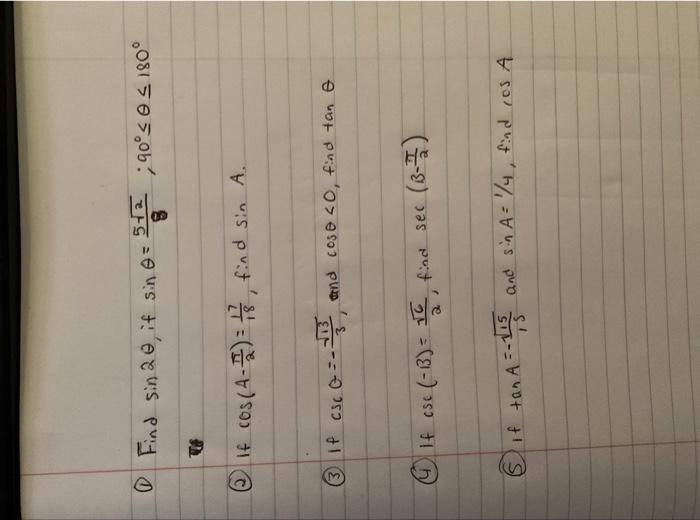 ① Find sin2θ, if sin θ = 5√2/8 ; 90° ≤ θ ≤ 180°
② If cos(A-π/2) = 17/18, find sin A.
③ If csc θ = -√13/3, and cos θ < 0, find tan θ
④ If csc(-B) = √6/2, find sec (B-π/2)
⑤ If tan A = -√15/15 and sin A = 1/4, find cos A